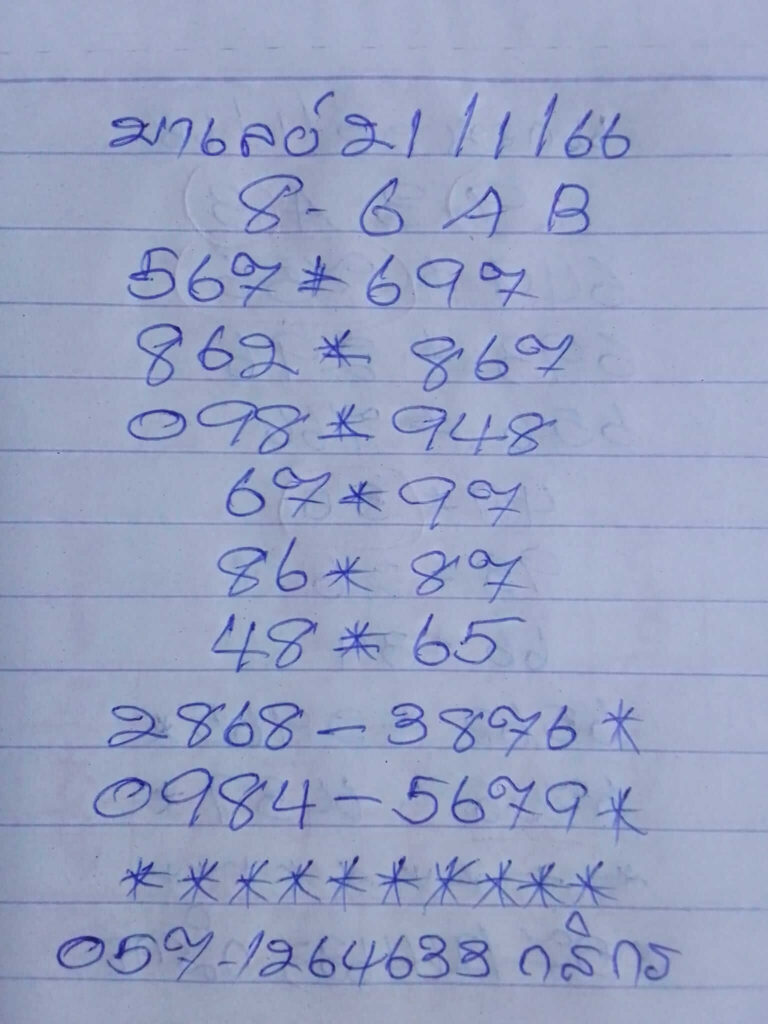 มาเลย์ 21/1/66
8-6 A B
567*697
862*867
098*948
67*97
86*87
48*65
2868-3876*
0984-5679*
**********
057-1264633 กสิกร